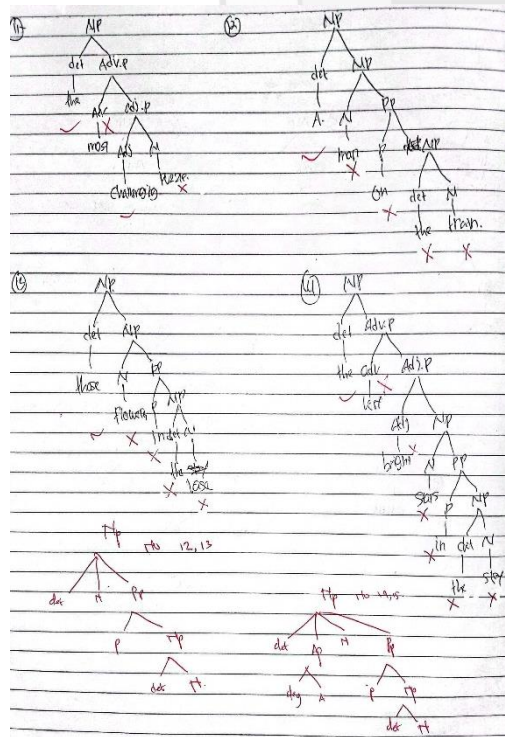 NP
det Adv.p
the
Adv Adj.p
most
Adj N
Challenging
NP
det NP
A. N PP
man P NP
on det N
the train.
NP
det NP
those N PP
flowers P NP
in det N
the
NP
det Adv.P
the adv Adj.P
Adj NP
bright N PP
stars P NP
in det N
the sky
NP No 12, 13
det N PP
P NP
det N.
NP
det AP N PP
deg A P NP
det N